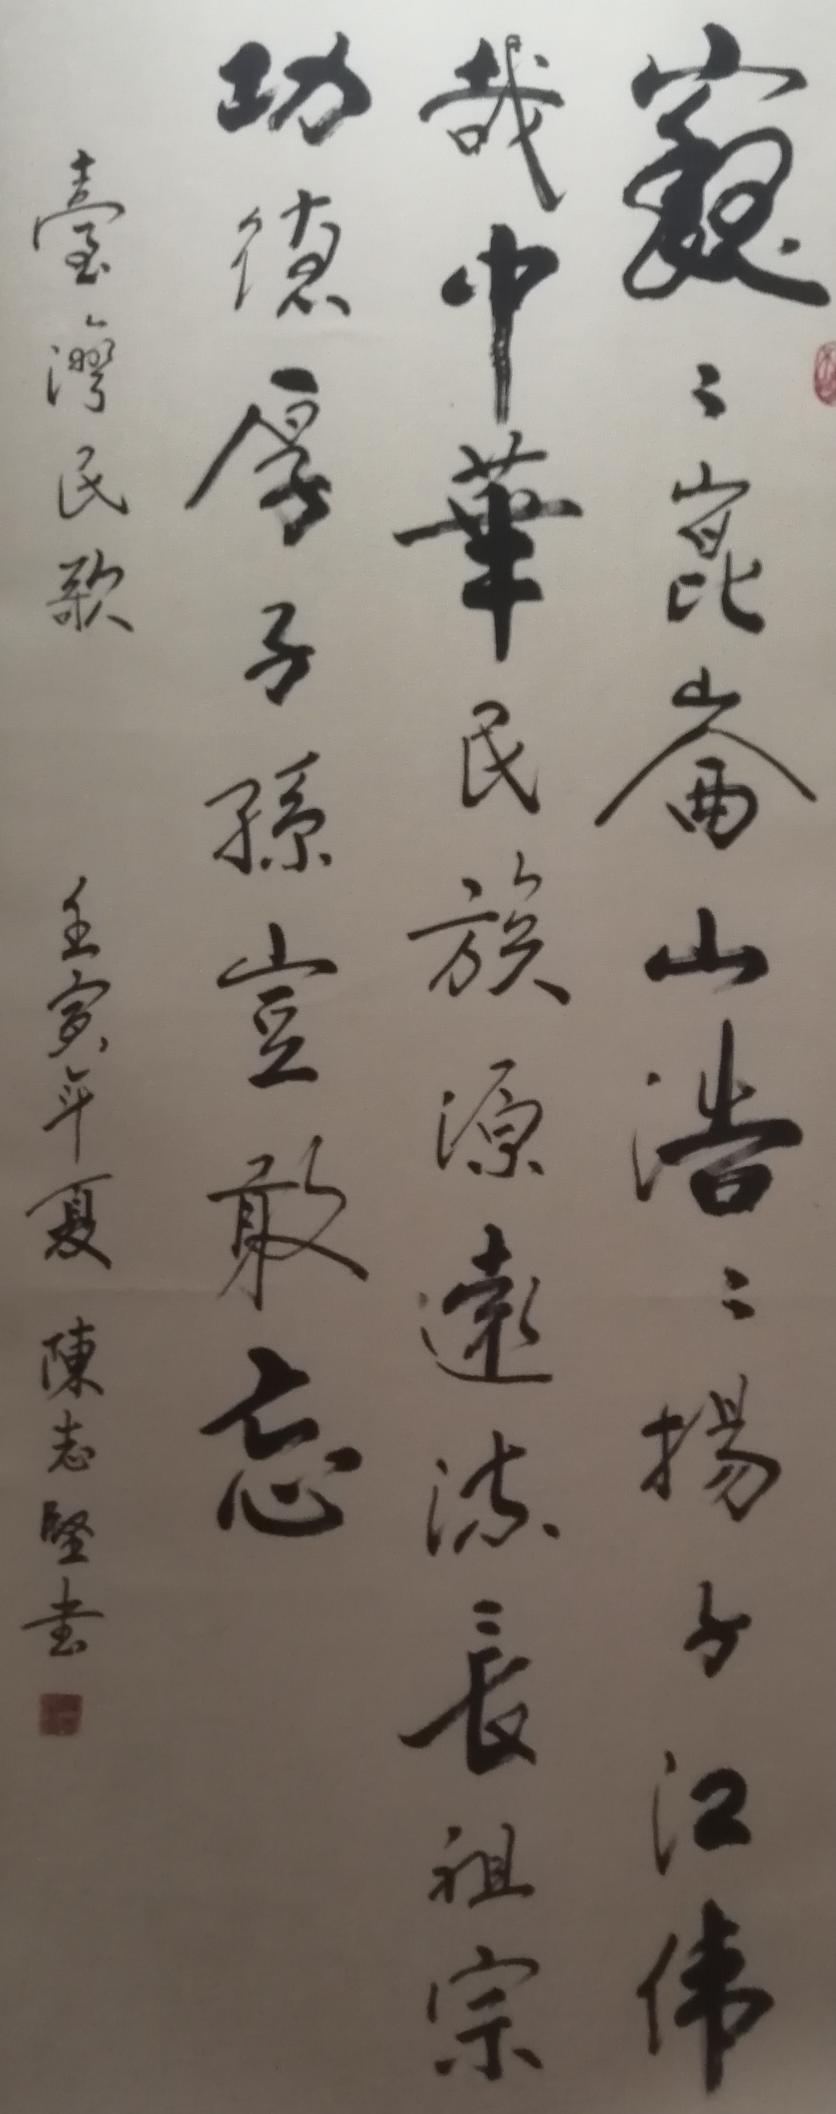 巍〻崑崙山浩〻揚子江伟
哉中華民族源遠流長祖宗
功德厚子孫豈敢忘
臺灣民歌 壬寅年夏 陳志堅书